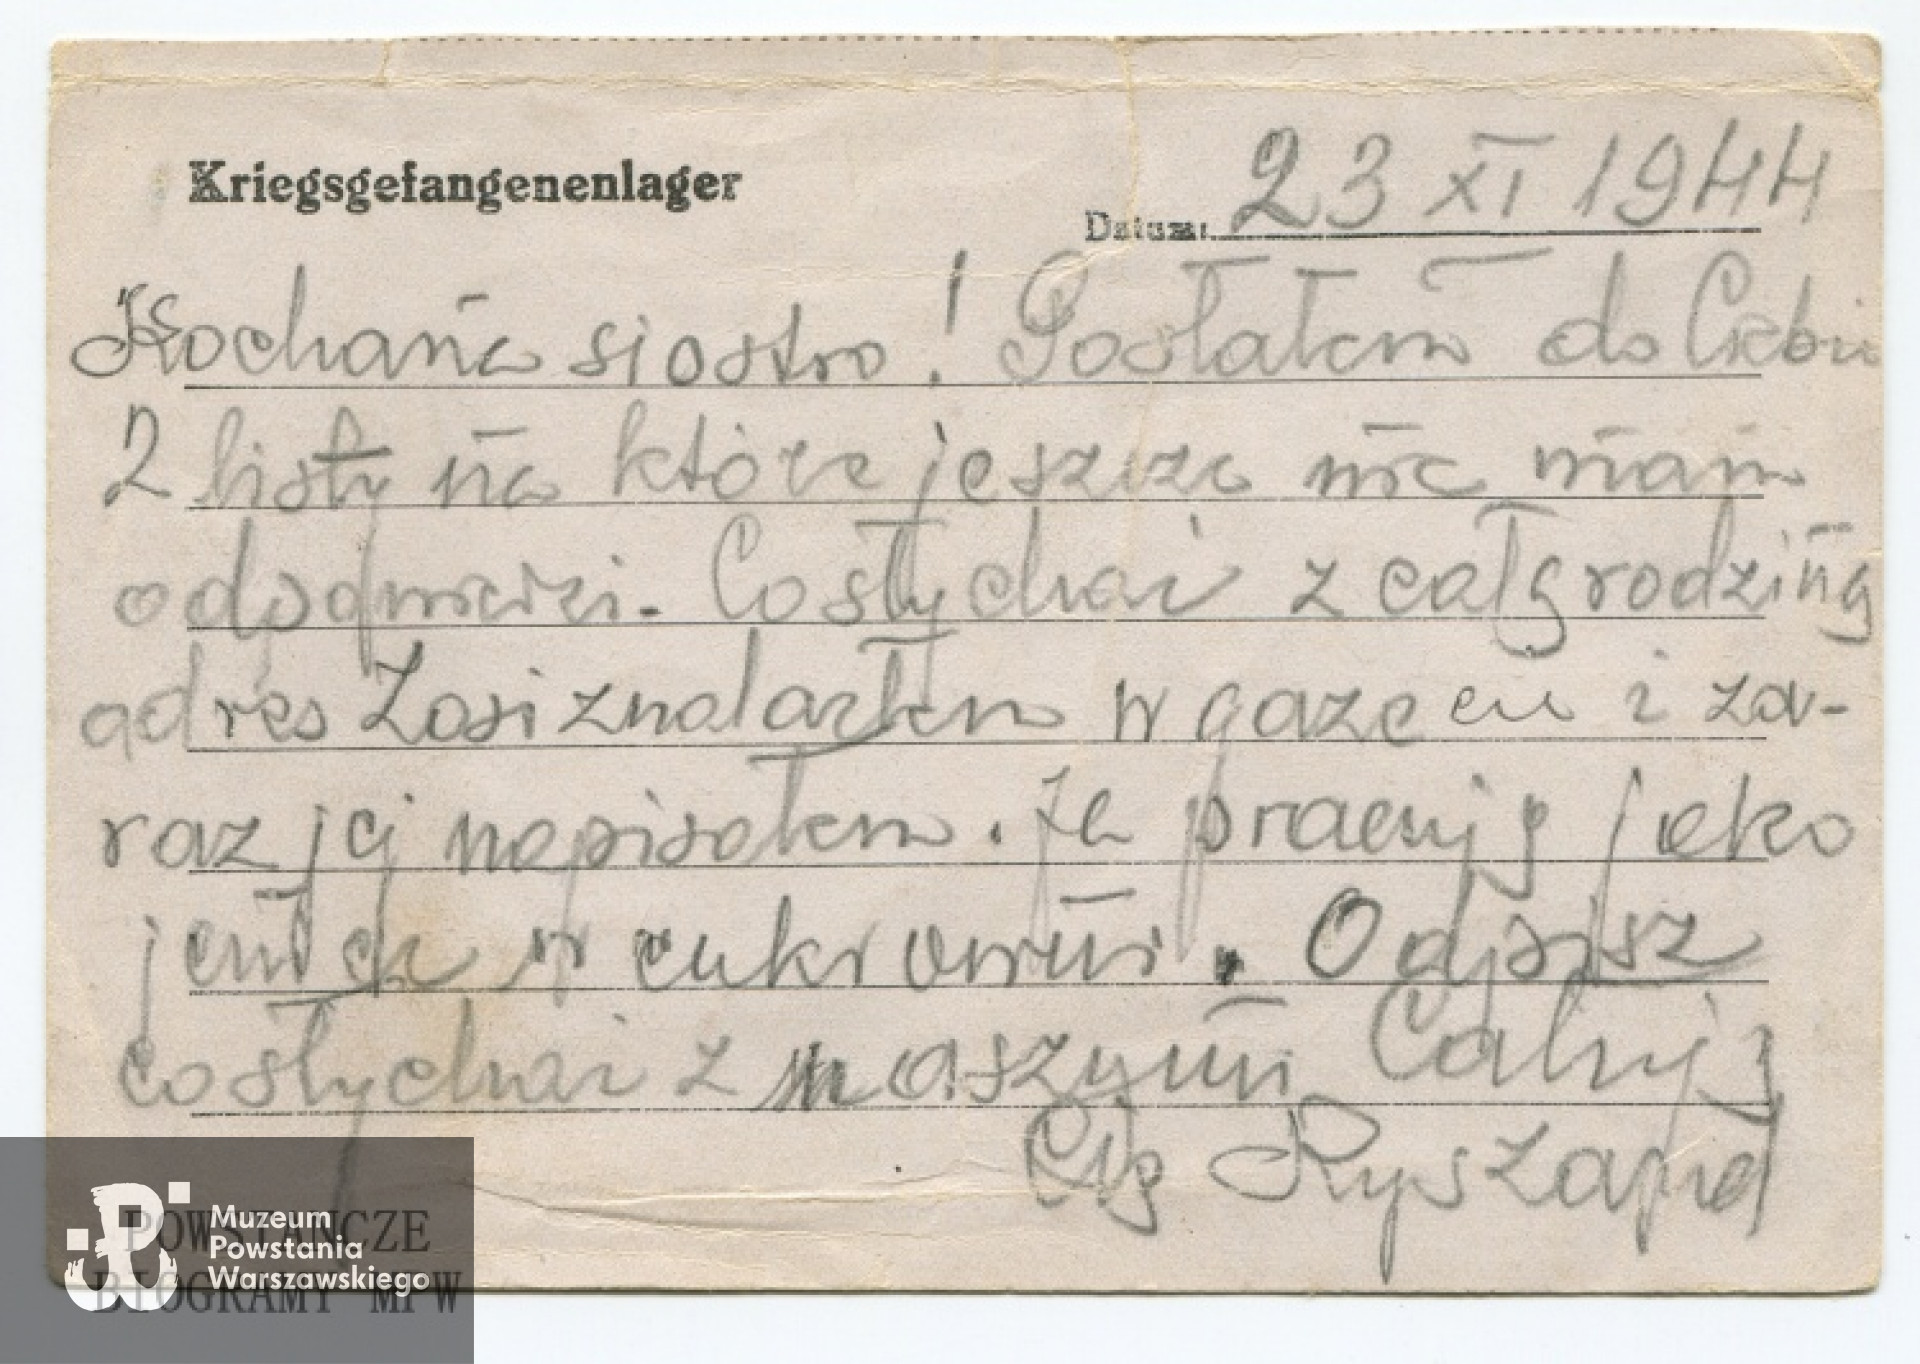 Kriegsgefangenenlager
Datum: 23 XI 1944
Kochana siostro! Posłałem do Ciebie
2 listy na które jeszcze nie mam
odpowiezi. Co słychać z całą rodziną
adres Zosi znalazłem w gazecie i za-
raz jej napisałem. Ja pracuję jako
jeniec w cukrowni. Odpisz
co słychać z maszyną Całuję
Cię Ryszard
POWSTAŃCZE
BIOGRAMY MPW
Muzeum
Powstania
Warszawskiego